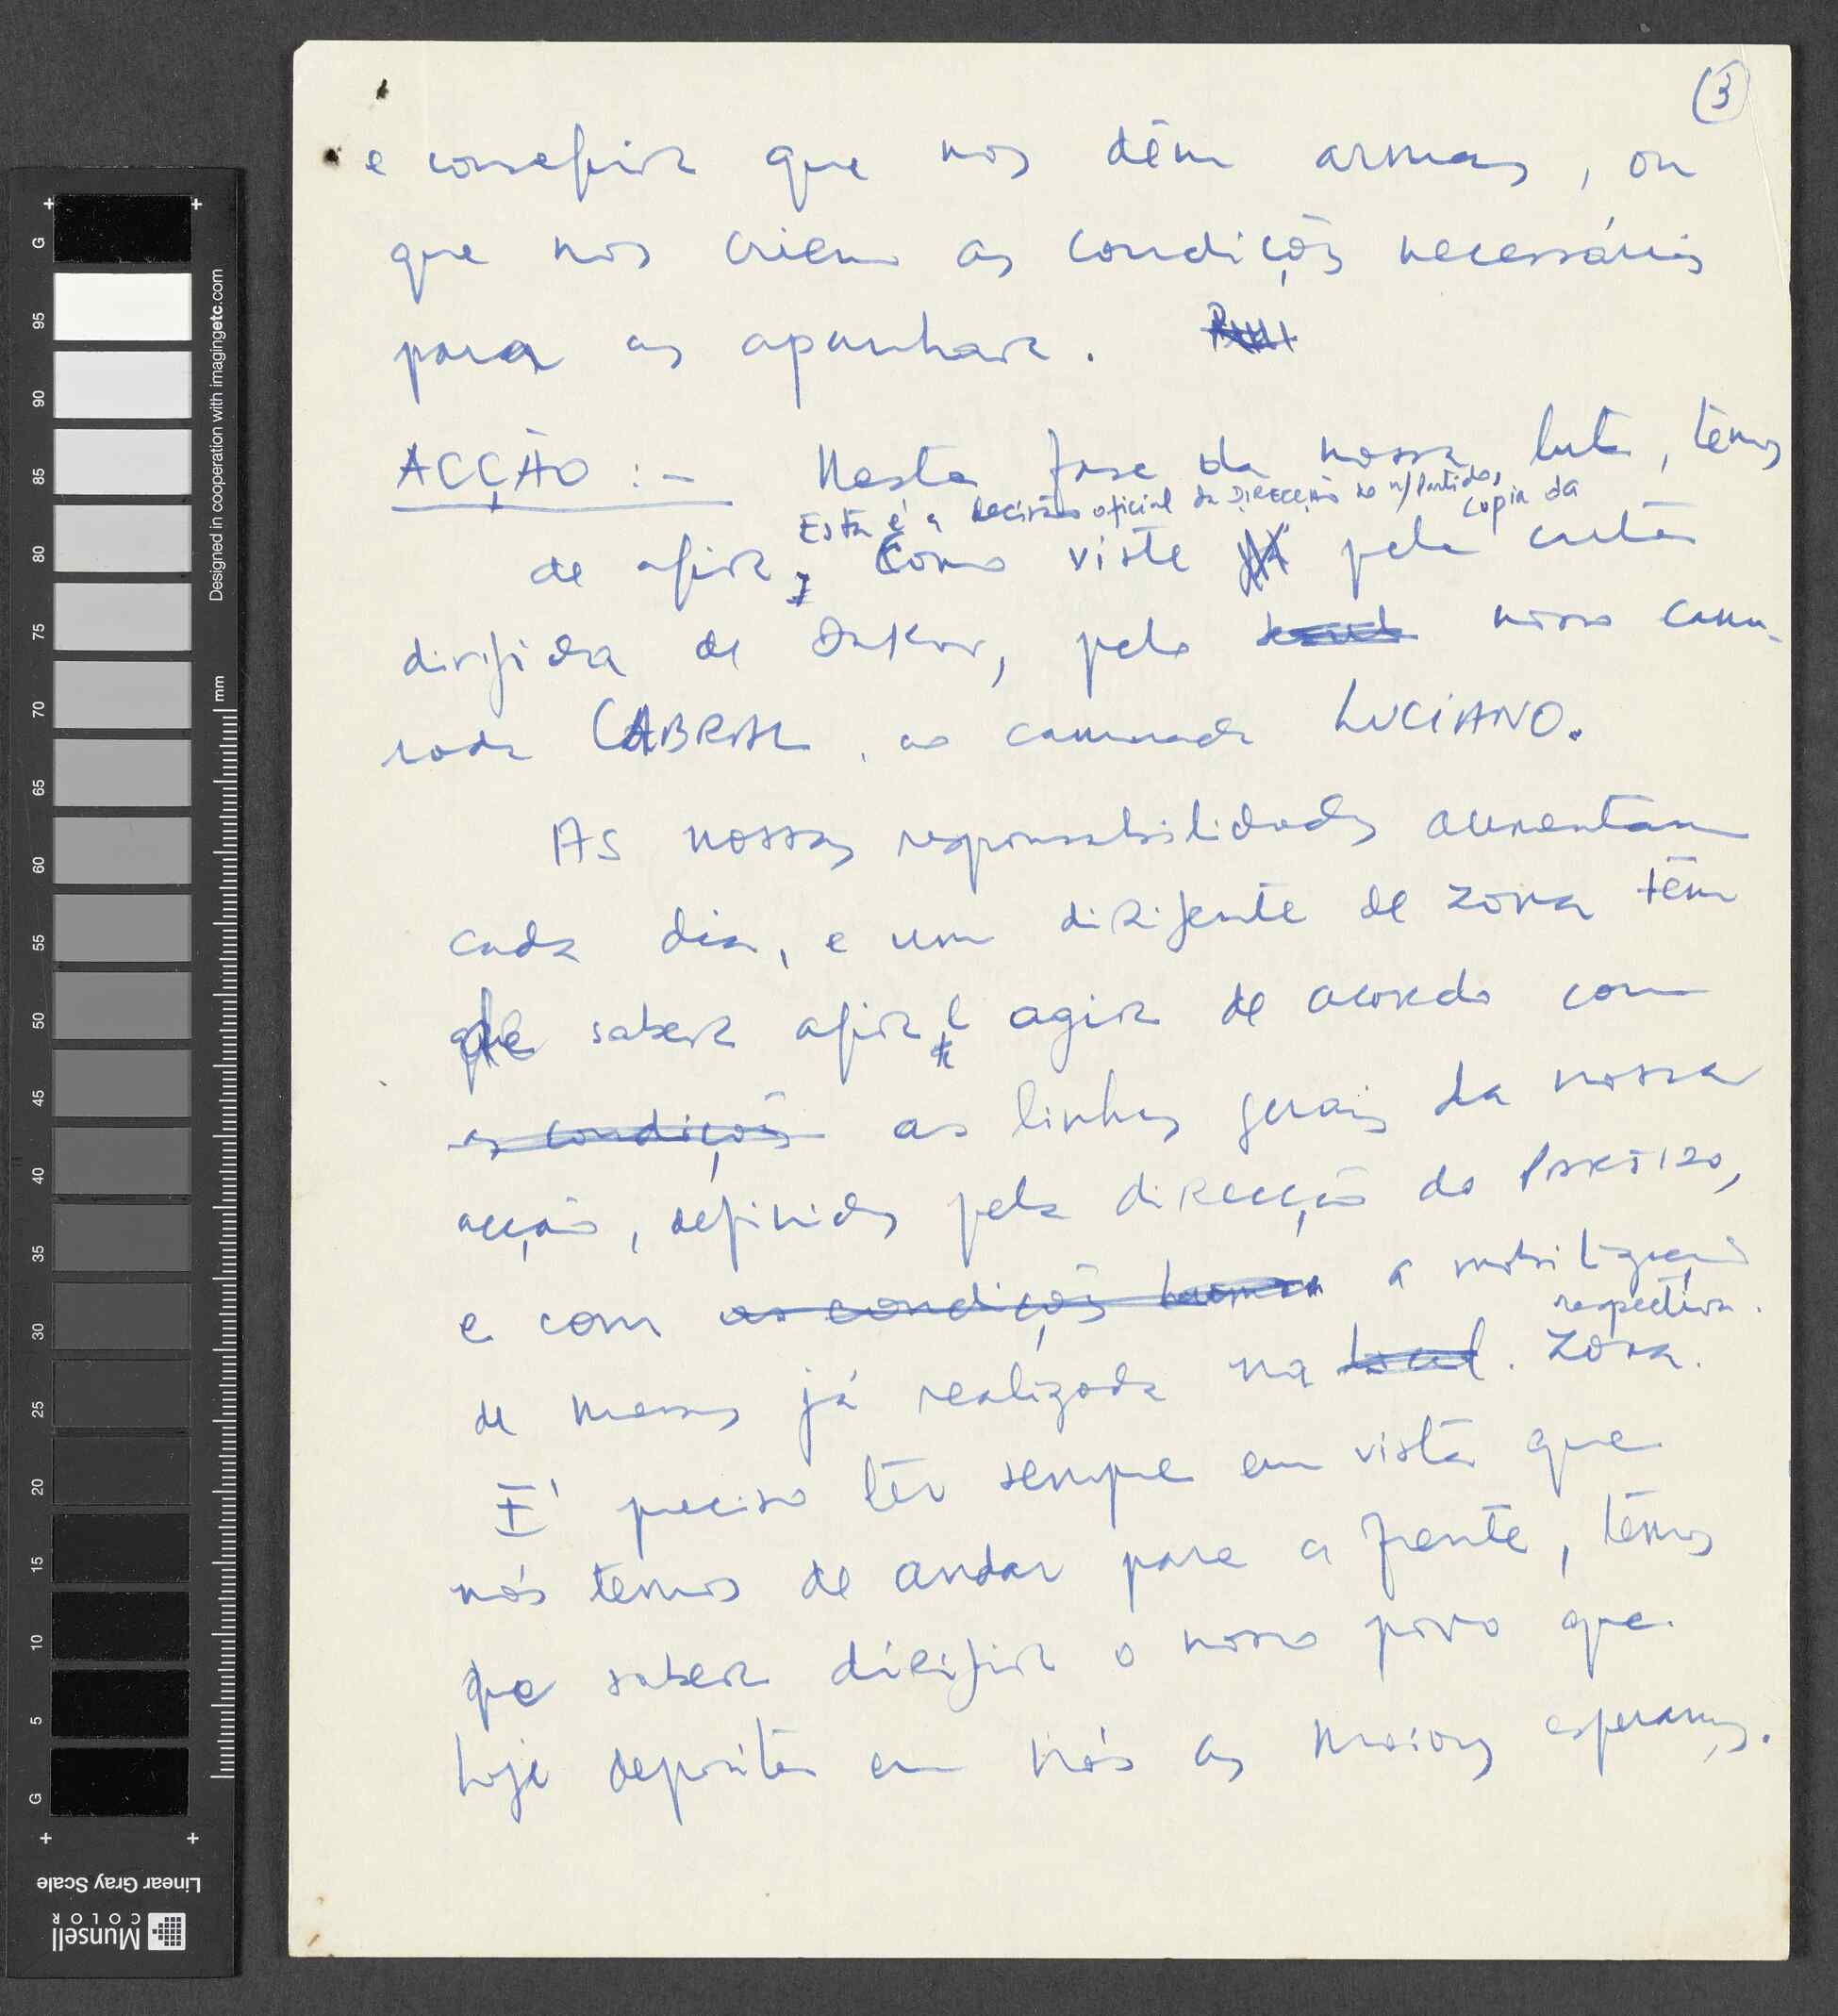 3
e conseguir que nos dêm armas, ou
que nos criem as condições necessárias
para as apanhar.
ACÇÃO :- Nesta fase da nossa luta, têmos
Esta é a decisão oficial da DIRECÇÃO do n/ Partido, copia da
de agir, Como viste pela carta
dirigida de Dakar, pelo nosso cama-
rada CABRAL, ao camarada LUCIANO.
As nossas responsabilidades aumentam
cada dia, e um dirigente de zona têm
que saber agir e agir de acordo com
as condições as linhas gerais da nossa
acção, definidas pela direcção do PARTIDO,
e com as condições a mobilização
respectiva.
de massas já realizada na local. Zona.
É preciso têr sempre em vista que
nós temos de andar para a frente, têmos
que saber dirigir o nosso povo que
hoje deposita em nós as maiores esperanças.
G
95
90
85
80
75
70
65
60
55
50
45
40
35
30
25
20
15
10
5
G
mm
Designed in cooperation with imagingetc.com
Linear Gray Scale
Munsell
COLOR